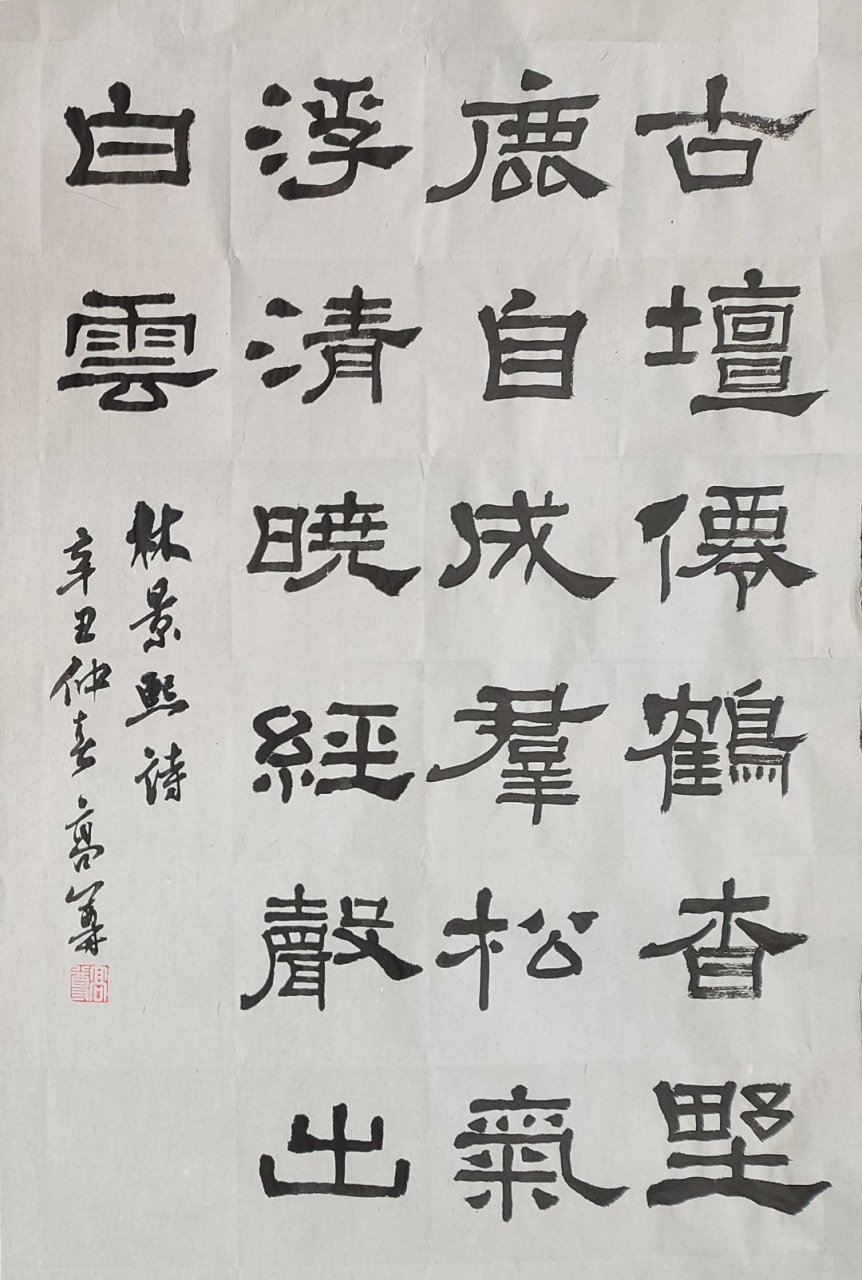 古壇僊鶴杳野
鹿自成羣松氣
浮清曉經聲出
白雲
林景熙詩
辛丑仲春高篹